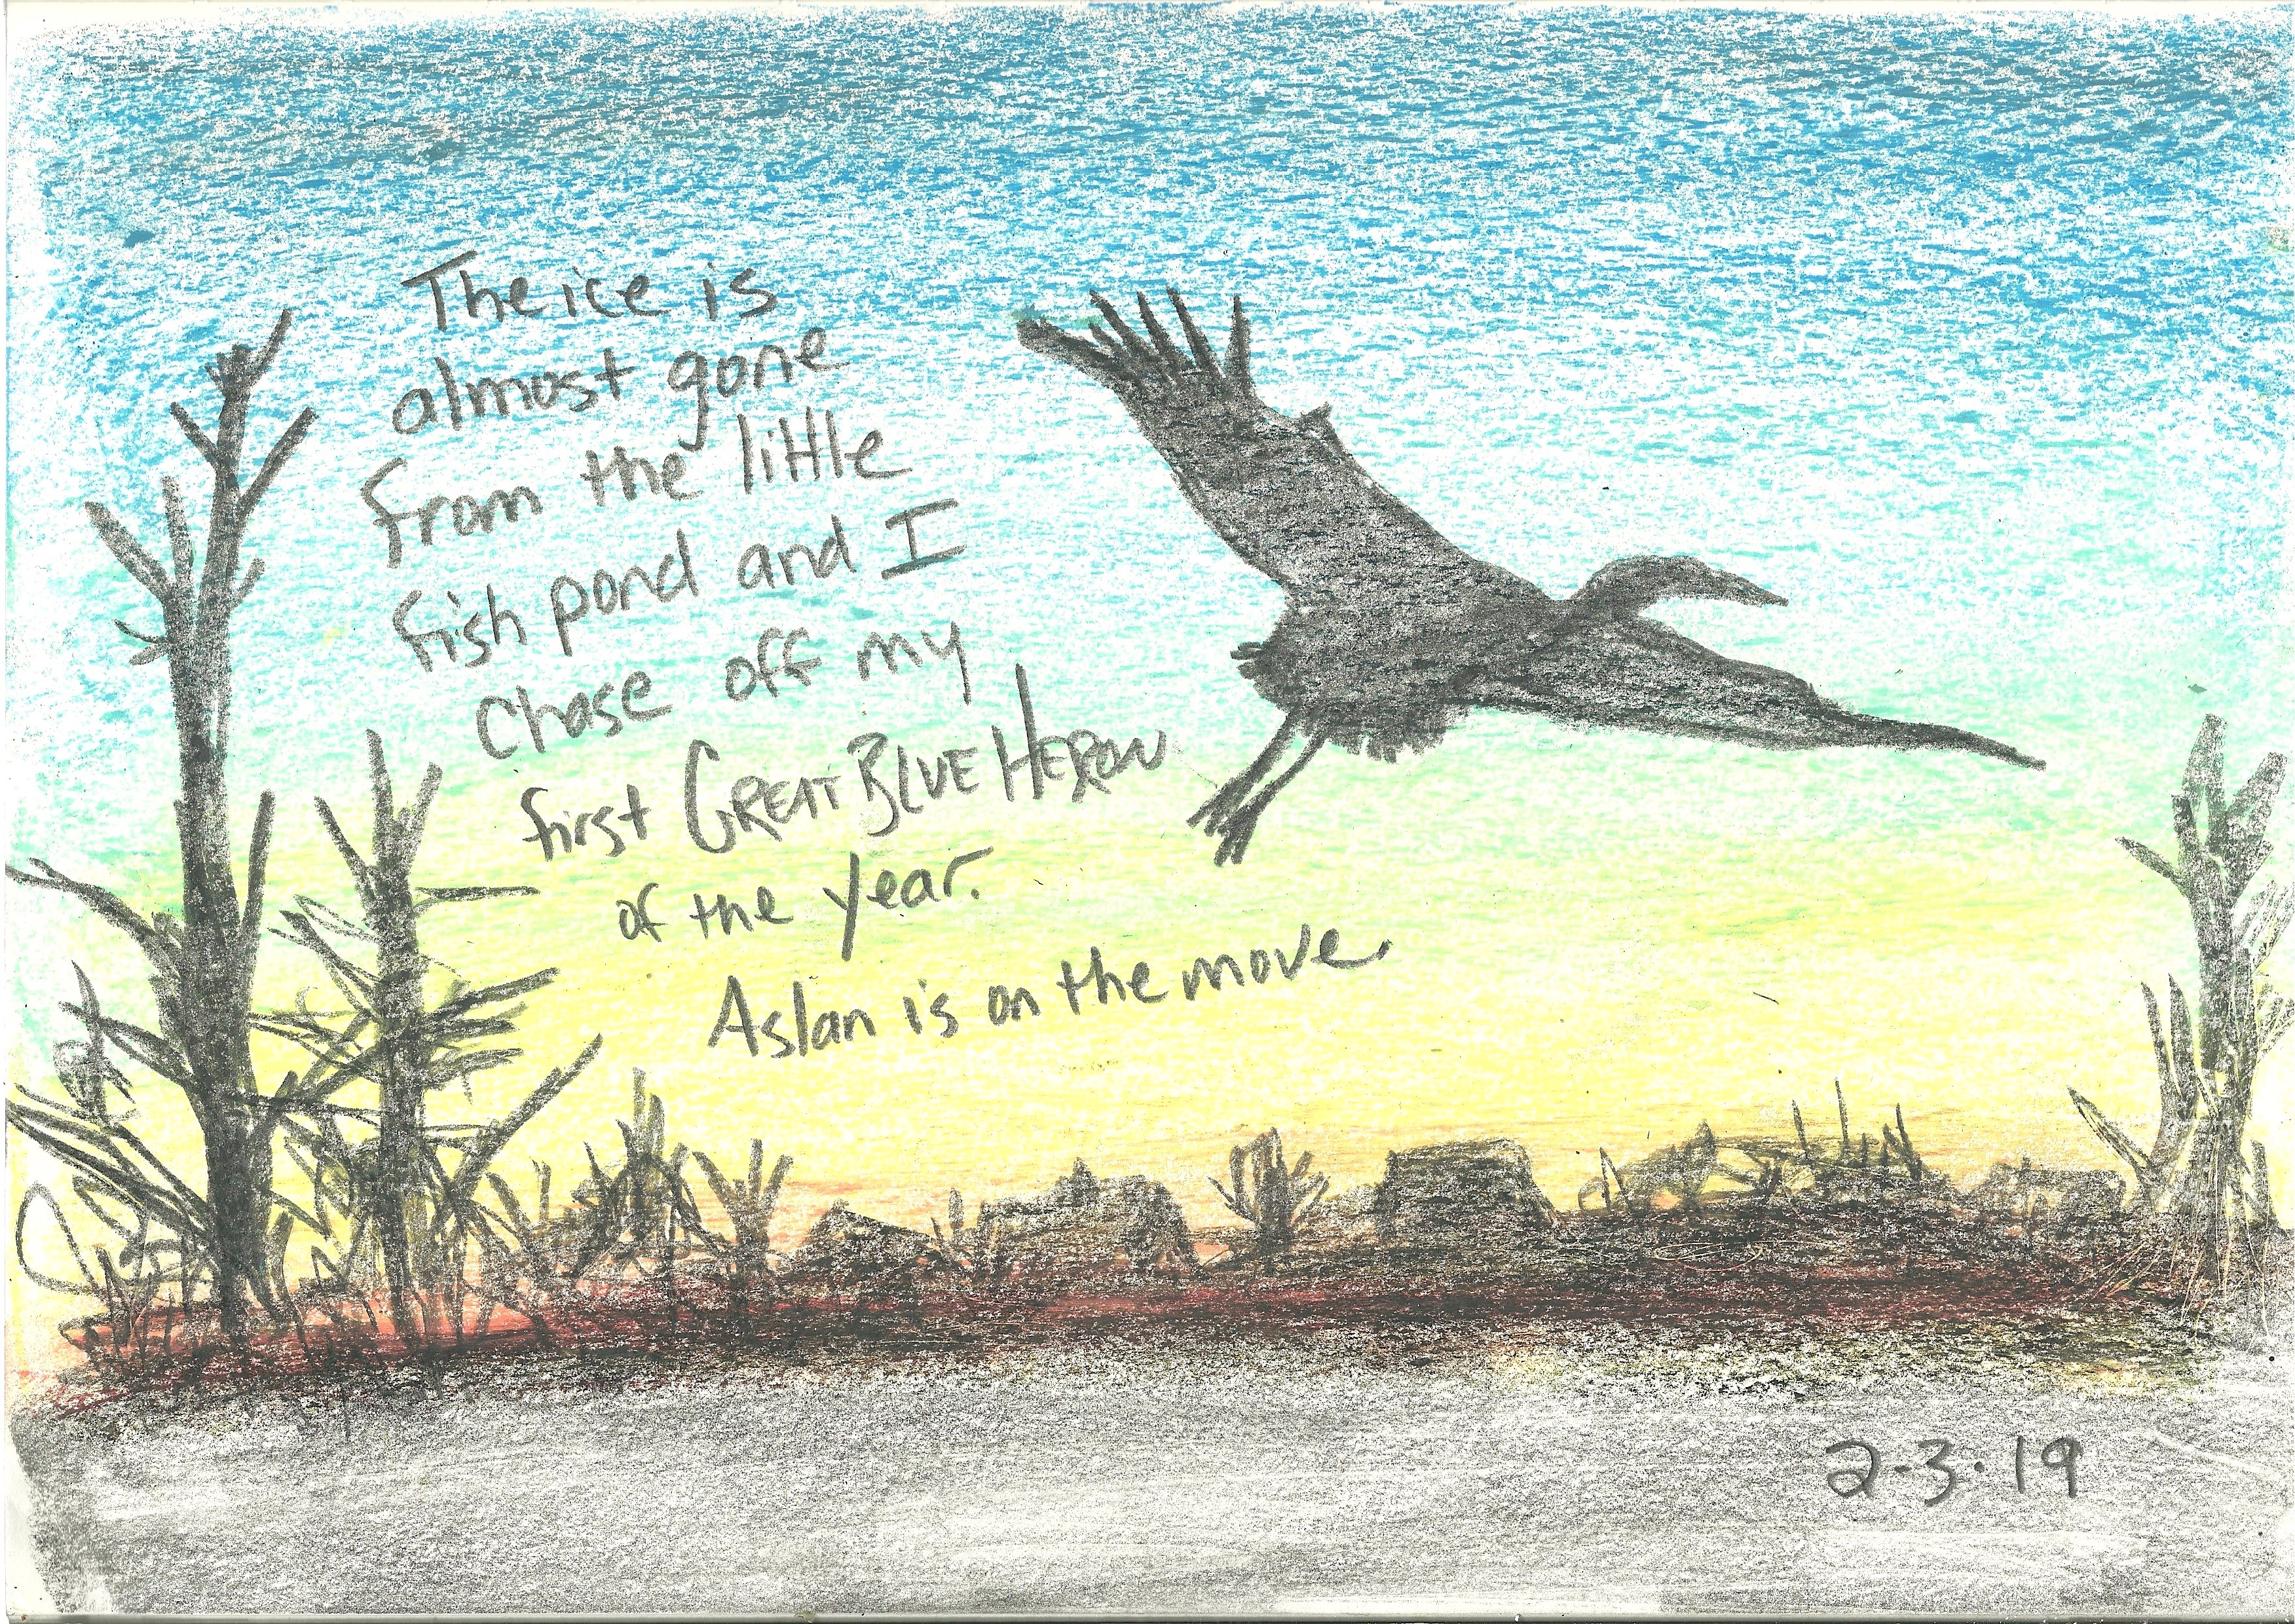 The ice is
almost gone
from the little
fish pond and I
chase off my
first GREAT BLUE HERON
of the year.
Aslan is on the move.
2-3-19